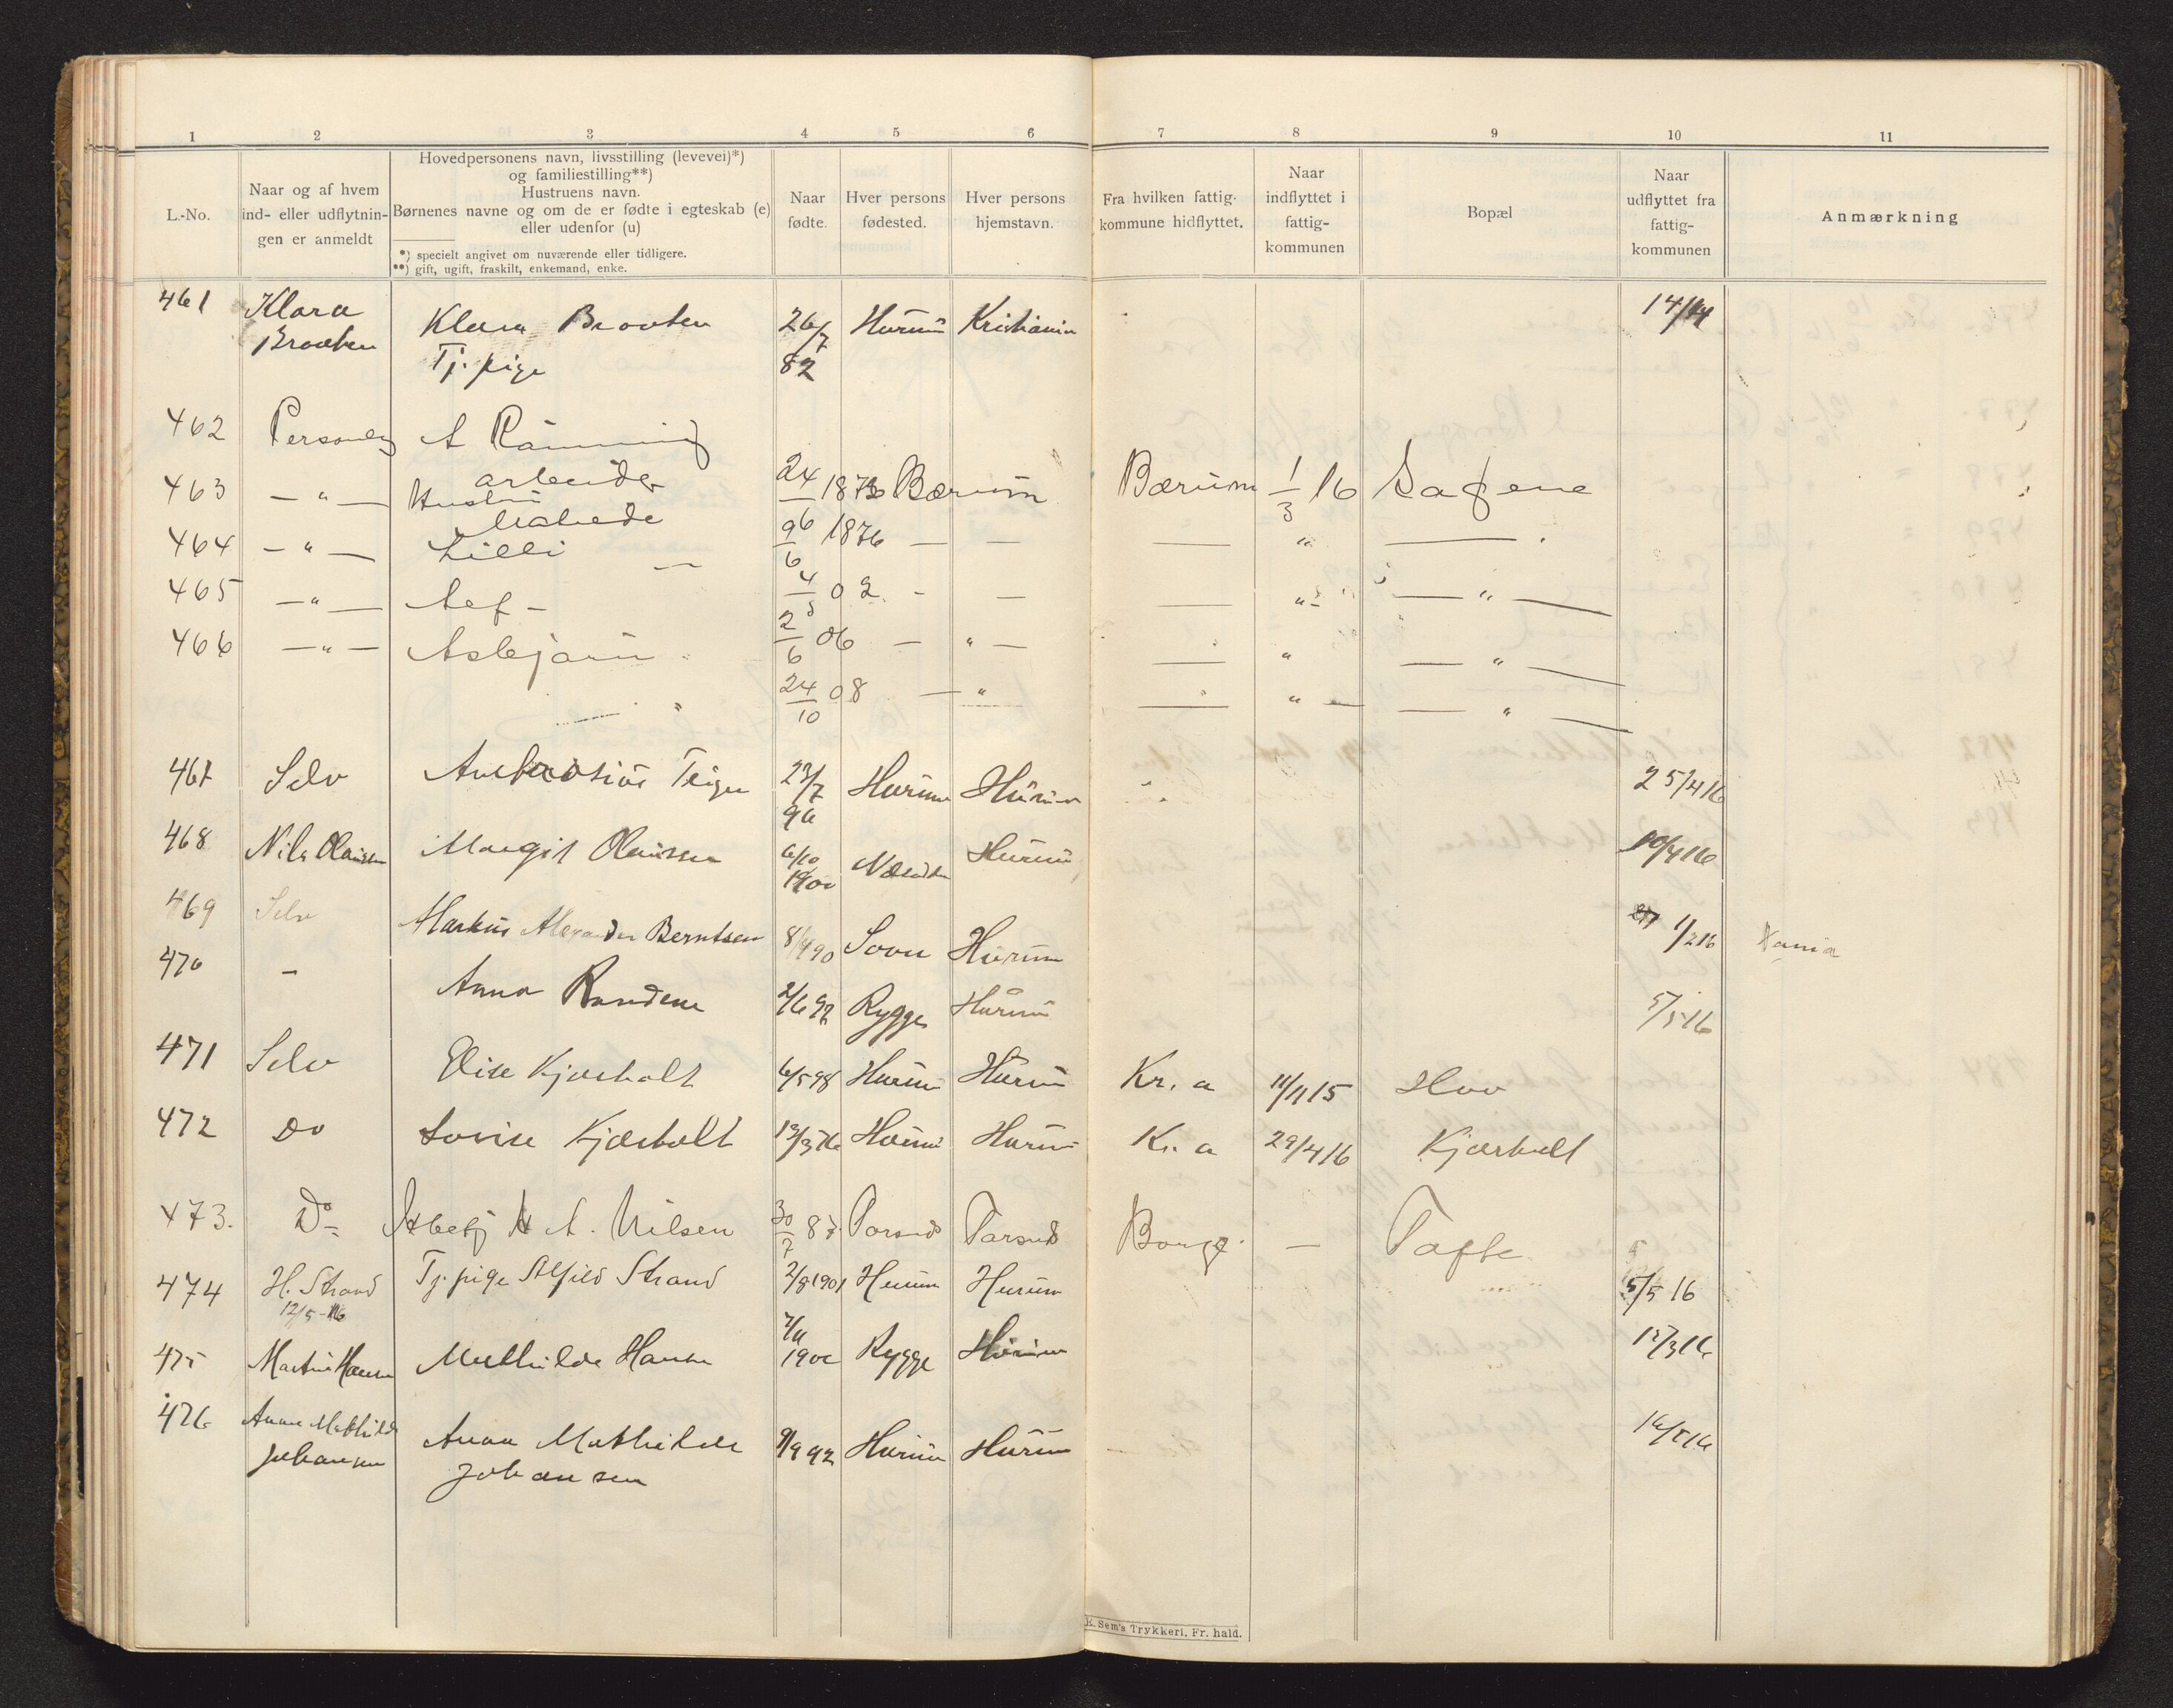 1 2 3 4 5 6 7 8 9 10 11
L.-No.
Naar og af hvem
ind- eller udflytnin-
gen er anmeldt
Hovedpersonens navn, livsstilling (levevei)*)
og familiestilling**)
Hustruens navn.
Børnenes navne og om de er fødte i egteskab (e)
eller udenfor (u)
*) specielt angivet om nuværende eller tidligere.
**) gift, ugift, fraskilt, enkemand, enke.
Naar
fødte.
Hver persons
fødested.
Hver persons
hjemstavn.
Fra hvilken fattig-
kommune hidflyttet.
Naar
indflyttet i
fattig-
kommunen
Bopæl
Naar
udflyttet fra
fattig-
kommunen
Anmærkning
461 Klara Klara Braaten 26/7 Hurum Kristiania
Braaten Tj. pige 82
462 Personlig A
arbeider
463 — " — Hustru 24 Bærum Bærum 1/3 16 Sagene
464 — " — Lilli 1876 — — — "
465 — " — 4/5 02 - — — " — " —
466 — " — Asbjørn 2/6 06 — " — — " — " —
24/10 08 — " — " — — " —
467 Selv Teigen 23/7 Hurum Hurum 25/4 16
96
468 Nils Olaussen Margit Olaussen 6/10 Hurum 10/4 16
1900
469 Selv Markus Alexander Berntsen 8/4 90 Hurum 1/2 16
470 - Anna 2/6 92 Rygge Hurum 5/5 16
471 Selv Elise Kjærholt 6/5 98 Hurum Hurum Kr. a 11/11 15 Hov
472 Do Lovise Kjærholt 13/3 76 Hurum Hurum Kr. a 29/4 16 Kjærholt
473. Do A. Nilsen 30/7 87 Borge — Tofte
474 H. Strand Tj. pige Alfild Strand 2/8 1901 Hurum Hurum 5/5 16
12/5-16
475 Martin Hansen Mathilde Hansen 1900 Rygge Hurum 12/3 16
476 Anna Mathilde Anna Mathilde 9/9 92 Hurum Hurum 16/5 16
Johansen Johansen
K. Sem's Trykkeri, Fr. hald.